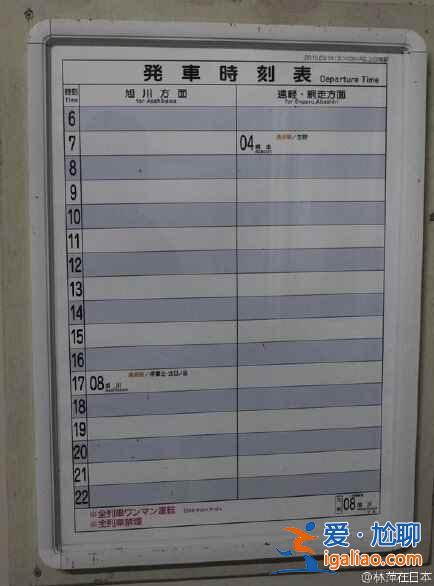 発車時刻表 Departure Time
時刻 Time
旭川方面 for Asahikawa
遠軽・網走方面 for Engaru, Abashiri
6
7 04 網走
8
9
10
11
12
13
14
15
16
17 08 旭川
18
19
20
21
22
※全列車ワンマン運転
※全列車禁煙
08
爱·尴聊
igaliao.com
@林萍在日本